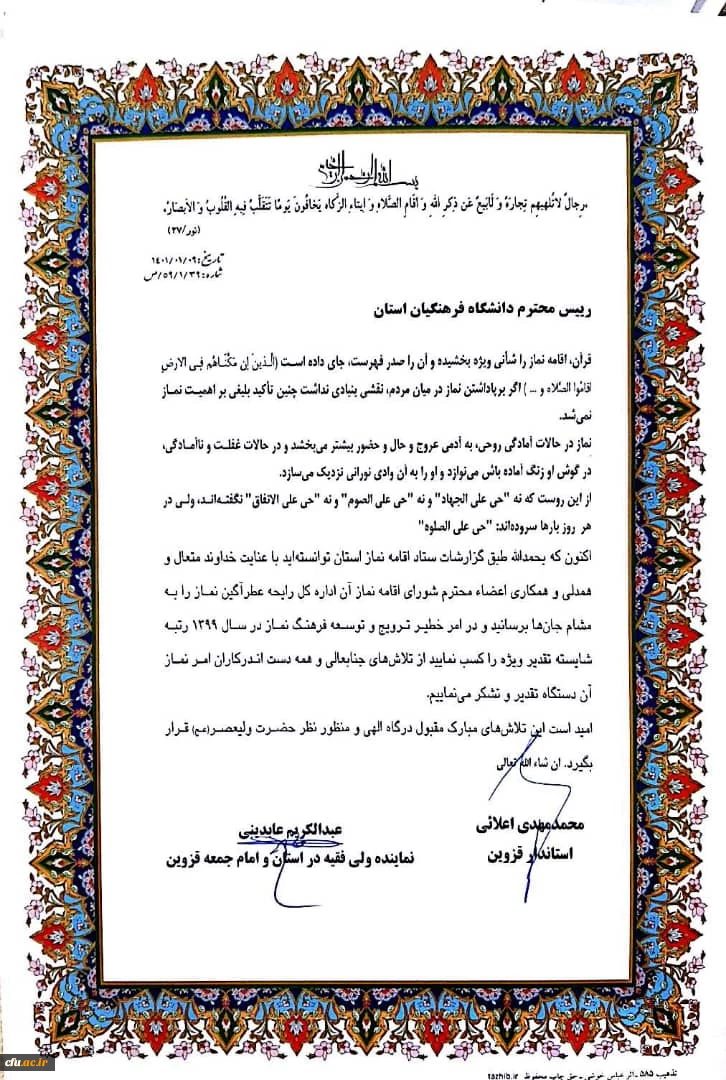 بسم الله الرحمن الرحیم
رِجالٌ لاتُلهیهِم تِجارَهٌ وَ لابَیعٌ عَن ذِکرِ اللهِ وَ اقامِ الصَّلاهِ وَ ایتاءِ الزَّکاهِ یَخافُونَ یَومًا تَتَقَلَّبُ فیهِ القُلُوبُ وَ الاَبصَارُ.
(نور/۳۷)
تاریخ: ۱۴۰۱/۰۱/۰۹
شماره: ۵۹/۱/۳۹/ص
رییس محترم دانشگاه فرهنگیان استان
قرآن، اقامه نماز را شأنی ویژه بخشیده و آن را صدر فهرست، جای داده است (الَّذینَ اِن مَکَّنّاهُم فِی الارضِ
اقامُوا الصَّلاه و ... ) اگر برپاداشتن نماز در میان مردم، نقشی بنیادی نداشت چنین تأکید بلیغی بر اهمیت نماز
نمی‌شد.
نماز در حالات آمادگی روحی، به آدمی عروج و حال و حضور بیشتر می‌بخشد و در حالات غفلت و ناآمادگی،
در گوش او زنگ آماده باش می‌نوازد و او را به آن وادی نورانی نزدیک می‌سازد.
از این روست که نه "حی علی الجهاد" و نه "حی علی الصوم" و نه "حی علی الانفاق" نگفته‌اند، ولی در
هر روز بارها سروده‌اند: "حی علی الصلوه"
اکنون که بحمدالله طبق گزارشات ستاد اقامه نماز استان توانسته‌اید با عنایت خداوند متعال و
همدلی و همکاری اعضاء محترم شورای اقامه نماز آن اداره کل رایحه عطرآگین نماز را به
مشام جان‌ها برسانید و در امر خطیر ترویج و توسعه فرهنگ نماز در سال ۱۳۹۹ رتبه
شایسته تقدیر ویژه را کسب نمایید از تلاش‌های جنابعالی و همه دست اندرکاران امر نماز
آن دستگاه تقدیر و تشکر می‌نماییم.
امید است این تلاش‌های مبارک مقبول درگاه الهی و منظور نظر حضرت ولیعصر(عج) قرار
بگیرد. ان شاء الله تعالی
محمدمهدی اعلائی
استاندار قزوین
عبدالکریم عابدینی
نماینده ولی فقیه در استان و امام جمعه قزوین
تذهیب ۵۸۵ - اثر عباس خوشی - حق چاپ محفوظ tazhib.ir
cfu.ac.ir